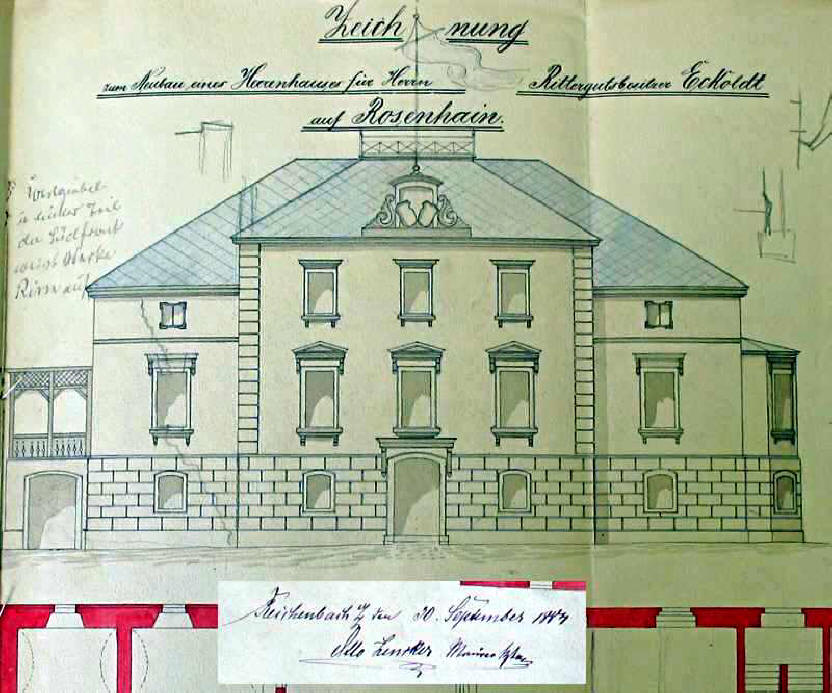 Zeichnung
zum Neubau eines Herrenhauses für Herrn Rittergutsbesitzer Eckoldt
auf Rosenhain.
Westgiebel
u linker Teil
der Südfront
weist starke
Risse auf
Reichenbach den 20. September
Otto Lencker